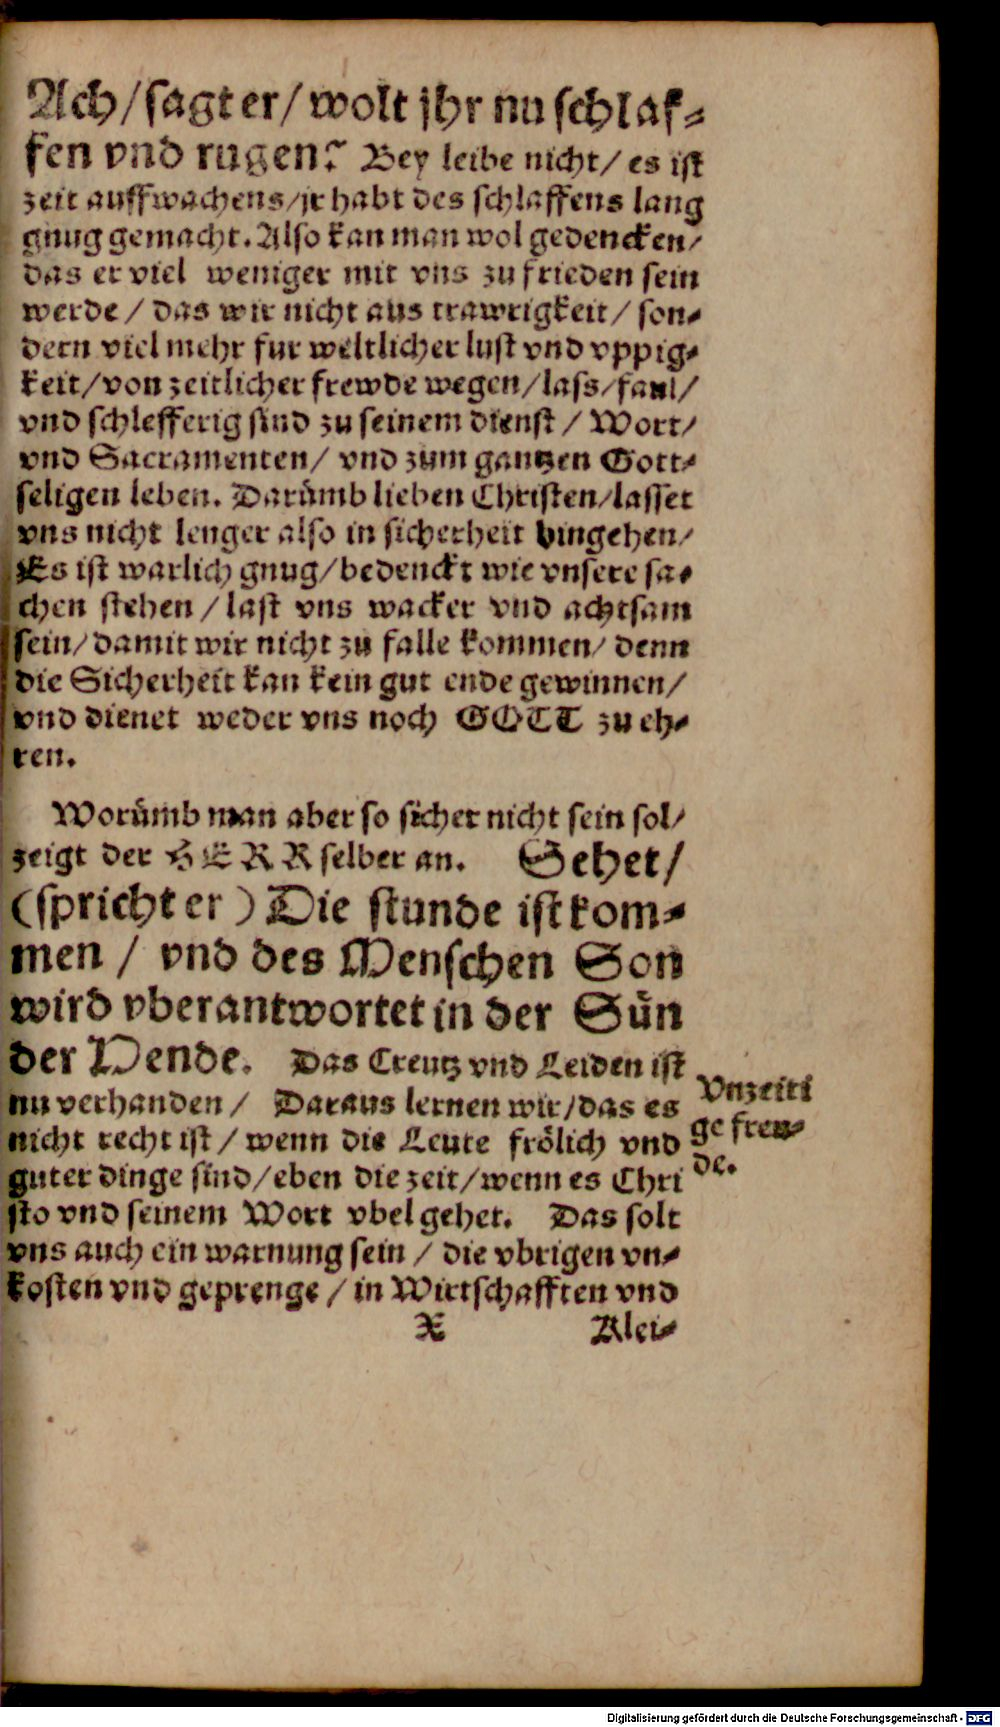 Ach/ sagt er/ wolt jhr nu schlaf-
fen vnd rugen? Bey leibe nicht/ es ist
zeit auffwachens/ jr habt des schlaffens lang
gnug gemacht. Also kan man wol gedencken/
das er viel weniger mit vns zu frieden sein
werde / das wir nicht aus trawrigkeit/ son-
dern viel mehr fur weltlicher lust vnd vppig-
keit/ von zeitlicher frewde wegen/ lass/ faul/
vnd schlefferig sind zu seinem dienst / Wort/
vnd Sacramenten/ vnd zum gantzen Gott-
seligen leben. Darümb lieben Christen/ lasset
vns nicht lenger also in sicherheit hingehen/
Es ist warlich gnug/ bedenckt wie vnsere sa-
chen stehen / last vns wacker vnd achtsam
sein/ damit wir nicht zu falle kommen/ denn
die Sicherheit kan kein gut ende gewinnen/
vnd dienet weder vns noch GOTT zu eh-
ren.
Worümb man aber so sicher nicht sein sol/
zeigt der HERR selber an. Sehet/
(spricht er) Die stunde ist kom-
men / vnd des Menschen Son
wird vberantwortet in der Sün
der Hende. Das Creutz vnd Leiden ist
nu verhanden / Daraus lernen wir/ das es
nicht recht ist / wenn die Leute frölich vnd
guter dinge sind/ eben die zeit/ wenn es Chri
sto vnd seinem Wort vbel gehet. Das solt
vns auch ein warnung sein / die vbrigen vn-
kosten vnd geprenge / in Wirtschafften vnd
X Klei-
Vnzeiti
ge freu-
de.
Digitalisierung gefördert durch die Deutsche Forschungsgemeinschaft - DFG